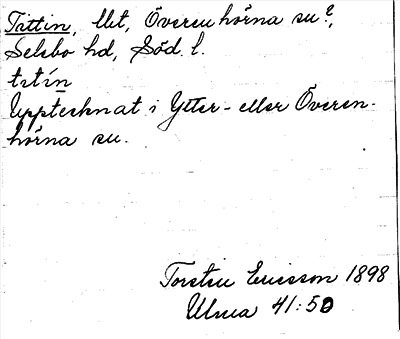 Tittin, lht, Överenhörna sn?,
Selebo hd, Söd. l.
tɩtín
Upptecknat i Ytter- eller Överen-
hörna sn.
Torsten Ericsson 1898
Ulma 41:50